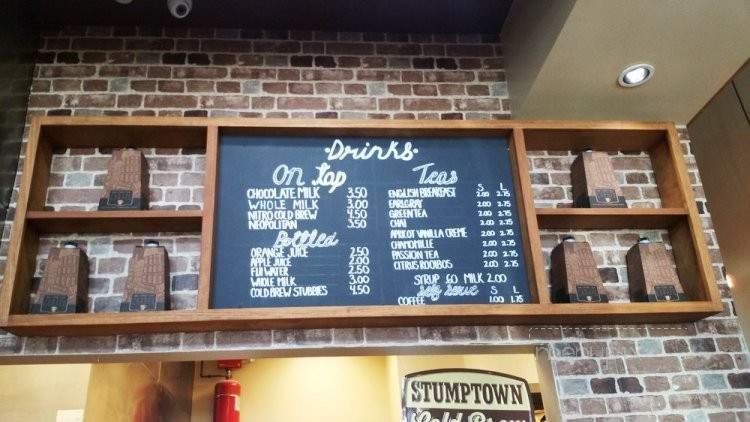 ·Drinks·
On Tap
CHOCOLATE MILK 3.50
WHOLE MILK 3.00
NITRO COLD BREW 4.50
NEOPOLITAN 3.50
Bottled
ORANGE JUICE 2.50
APPLE JUICE 2.00
FIJI WATER 2.50
WHOLE MILK 3.00
COLD BREW STUBBIES 4.50
Teas
S L
ENGLISH BREAKFAST 2.00 2.75
EARL GRAY 2.00 2.75
GREEN TEA 2.00 2.75
CHAI 2.00 2.75
APRICOT VANILLA CREME 2.00 2.75
CHAMOMILLE 2.00 2.75
PASSION TEA 2.00 2.75
CITRUS ROOIBOS 2.00 2.75
SYRUP .50 MILK 2.00
Self Serve S L
COFFEE 1.00 1.75
STUMPTOWN
Cold Brew